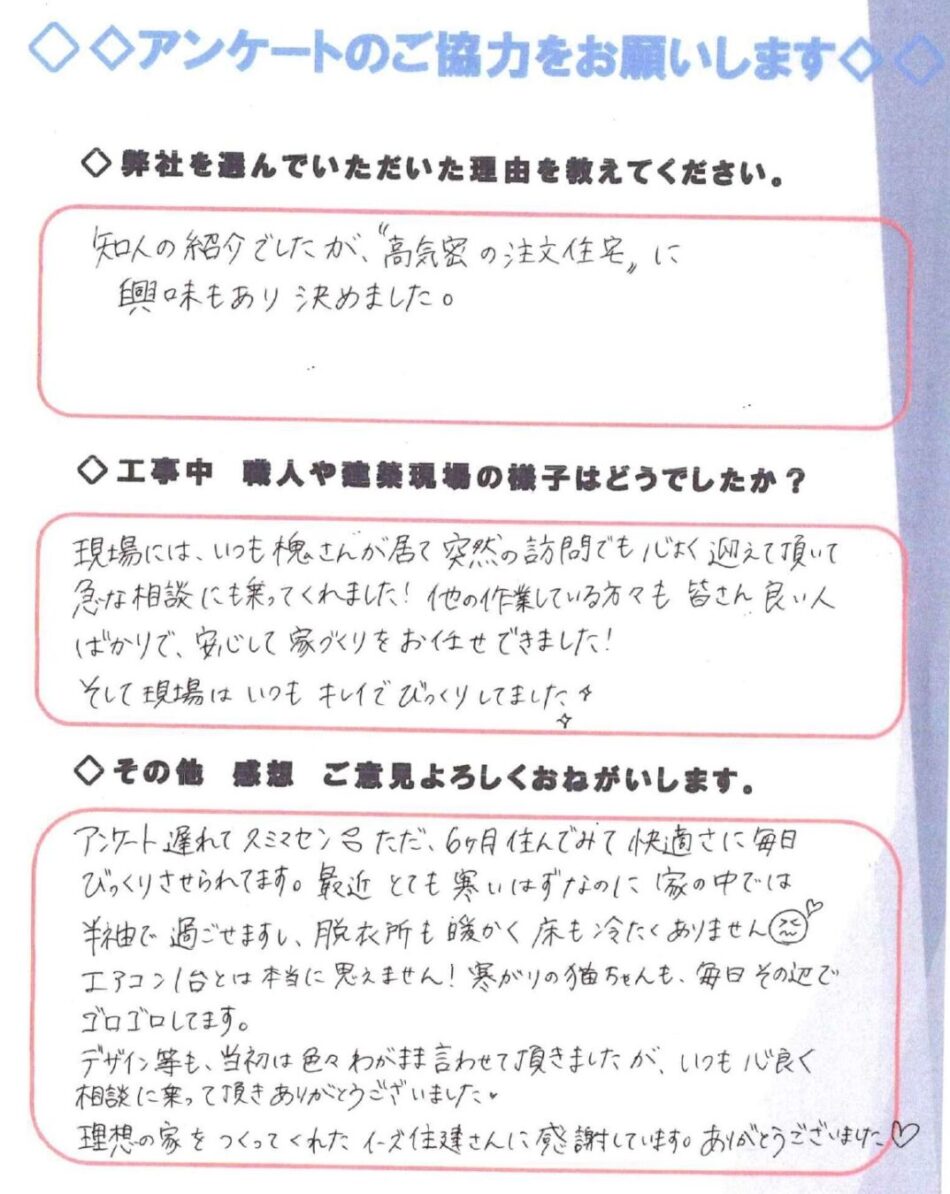 ◇◇アンケートのご協力をお願いします◇◇
◇弊社を選んでいただいた理由を教えてください。
知人の紹介でしたが、〝高気密の注文住宅〟に
興味もあり決めました。
◇工事中 職人や建築現場の様子はどうでしたか？
現場には、いつも槐さんが居て突然の訪問でも心よく迎えて頂いて
急な相談にも乗ってくれました！他の作業している方々も皆さん良い人
ばかりで、安心して家づくりをお任せできました！
そして現場はいつもキレイでびっくりしてました
◇その他 感想 ご意見よろしくおねがいします。
アンケート遅れてスミマセン ただ、6ヶ月住んでみて快適さに毎日
びっくりさせられてます。最近とても寒いはずなのに家の中では
半袖で過ごせますし、脱衣所も暖かく床も冷たくありません
エアコン1台とは本当に思えません！寒がりの猫ちゃんも、毎日その辺で
ゴロゴロしてます。
デザイン等も、当初は色々わがまま言わせて頂きましたが、いつも心良く
相談に乗って頂きありがとうございました
理想の家をつくってくれたイーズ住建さんに感謝しています。ありがとうございました♡